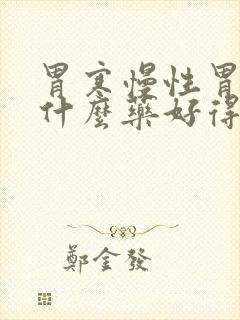 胃寒慢性胃
什麼藥好得
鄭金發